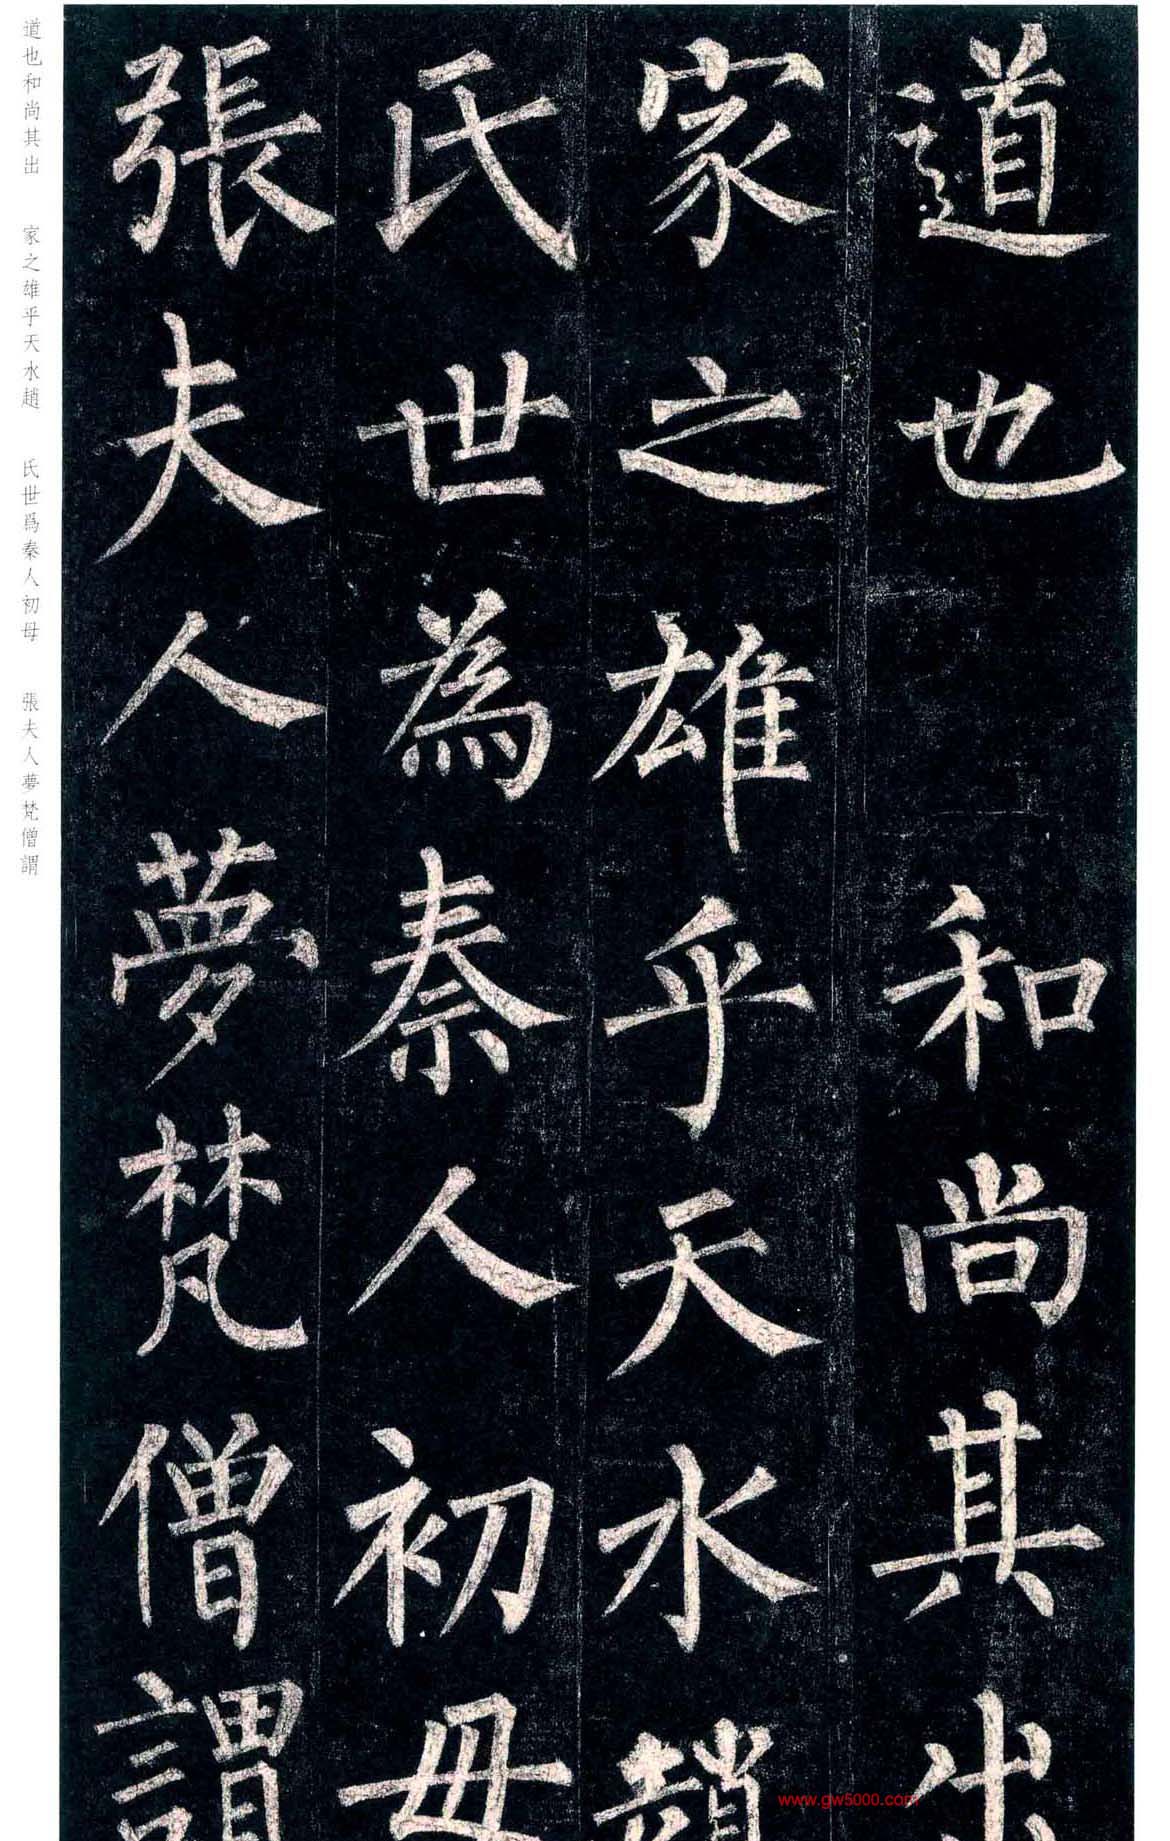 道也　和尚其出
家之雄乎天水趙
氏世為秦人初母
張夫人夢梵僧謂
道也和尚其出　家之雄乎天水趙　氏世爲秦人初母　張夫人夢梵僧謂
www.gw5000.com